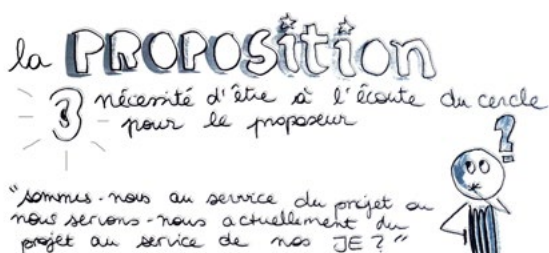 la PROPOSition
nécessité d'être à l'écoute du cercle
pour le proposeur
"sommes-nous au service du projet ou
nous servons-nous actuellement du
projet au service de nos JE ?"
?